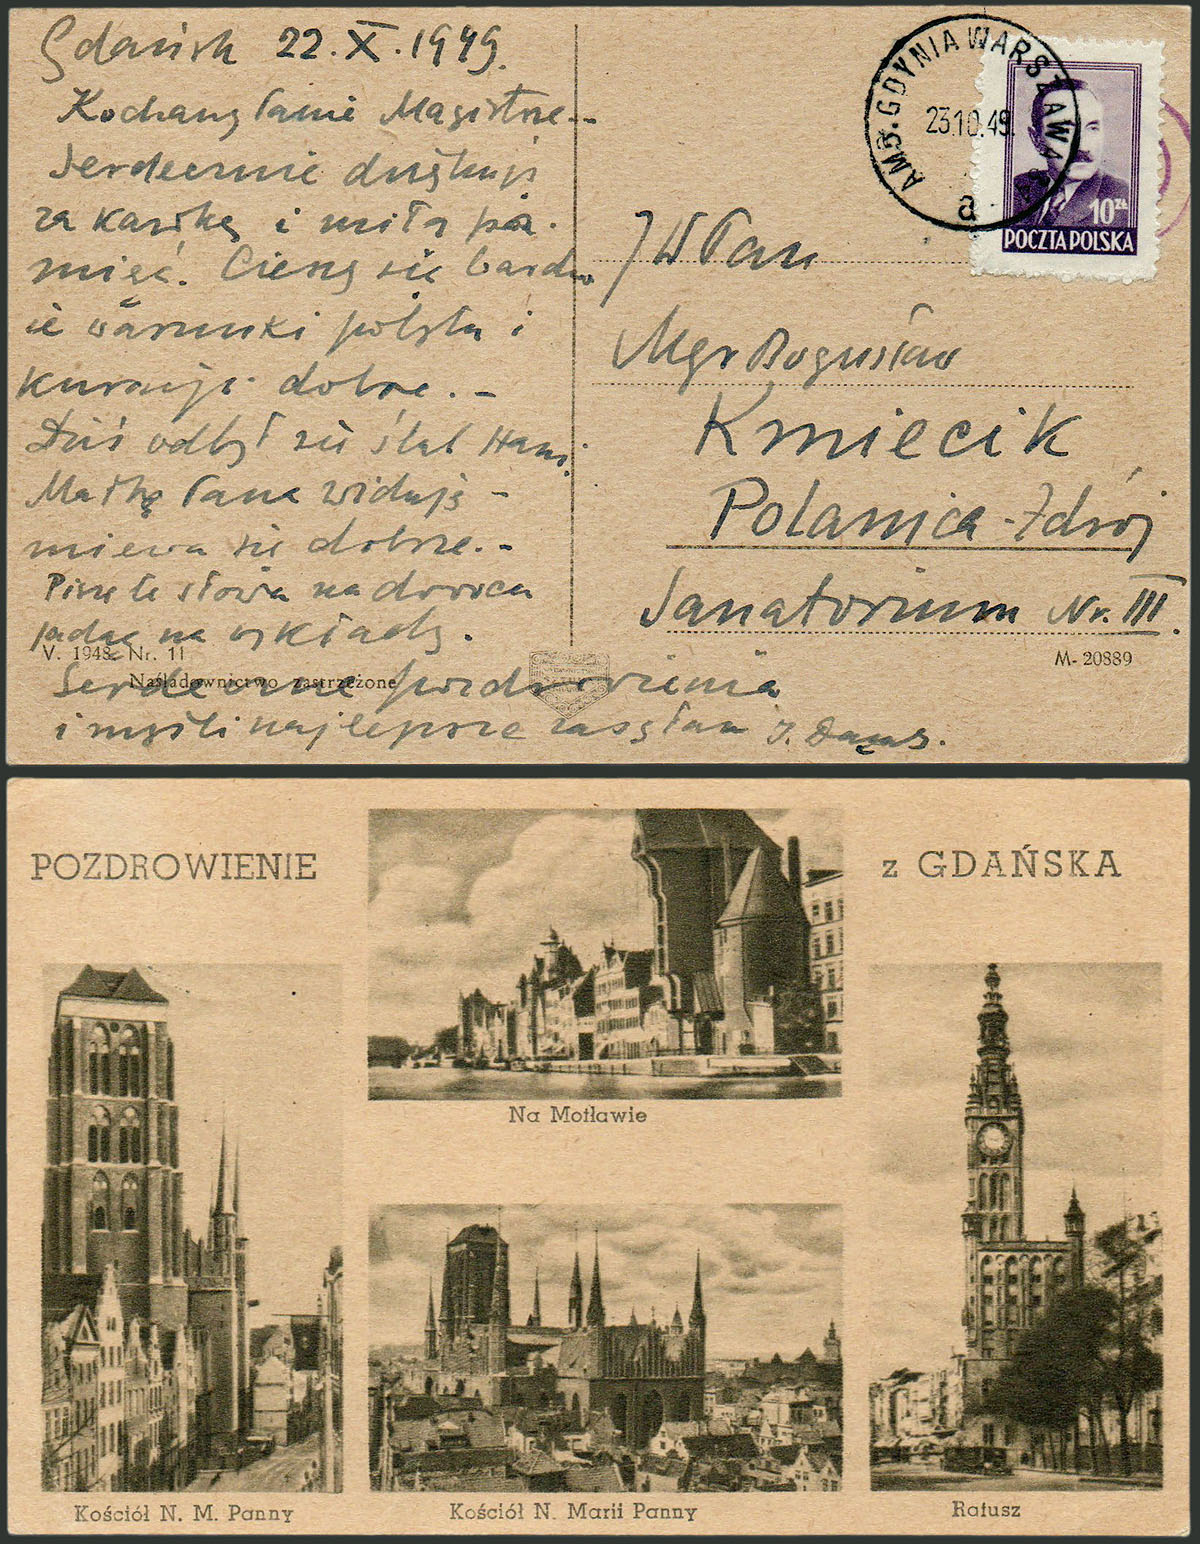 Gdańsk 22.X.1949.
Kochany Panie Magistrze.-
Serdecznie dziękuję
za kartkę i miłą pa-
mięć. Cieszę się bardzo
że warunki pobytu i
kuracji dobre.-
Dziś odbył się ślub Hani
Matkę Pana widuję -
miewa się dobrze.-
Piszę te słowa na dworcu
jadąc na wykłady.
Serdeczne pozdrowienia
i myśli najlepsze zasyłam J.
V. 1948 Nr. 11
Naśladownictwo zastrzeżone
AMB. GDYNIA WARSZAWA
23.10.49.
a
10 ZŁ
POCZTA POLSKA
JW Pan
Mgr Bogusław
Kmiecik
Polanica-Zdrój
Sanatorium Nr. III.
M-20889
POZDROWIENIE z GDAŃSKA
Na Motławie
Kościół N. M. Panny
Kościół N. Marii Panny
Ratusz